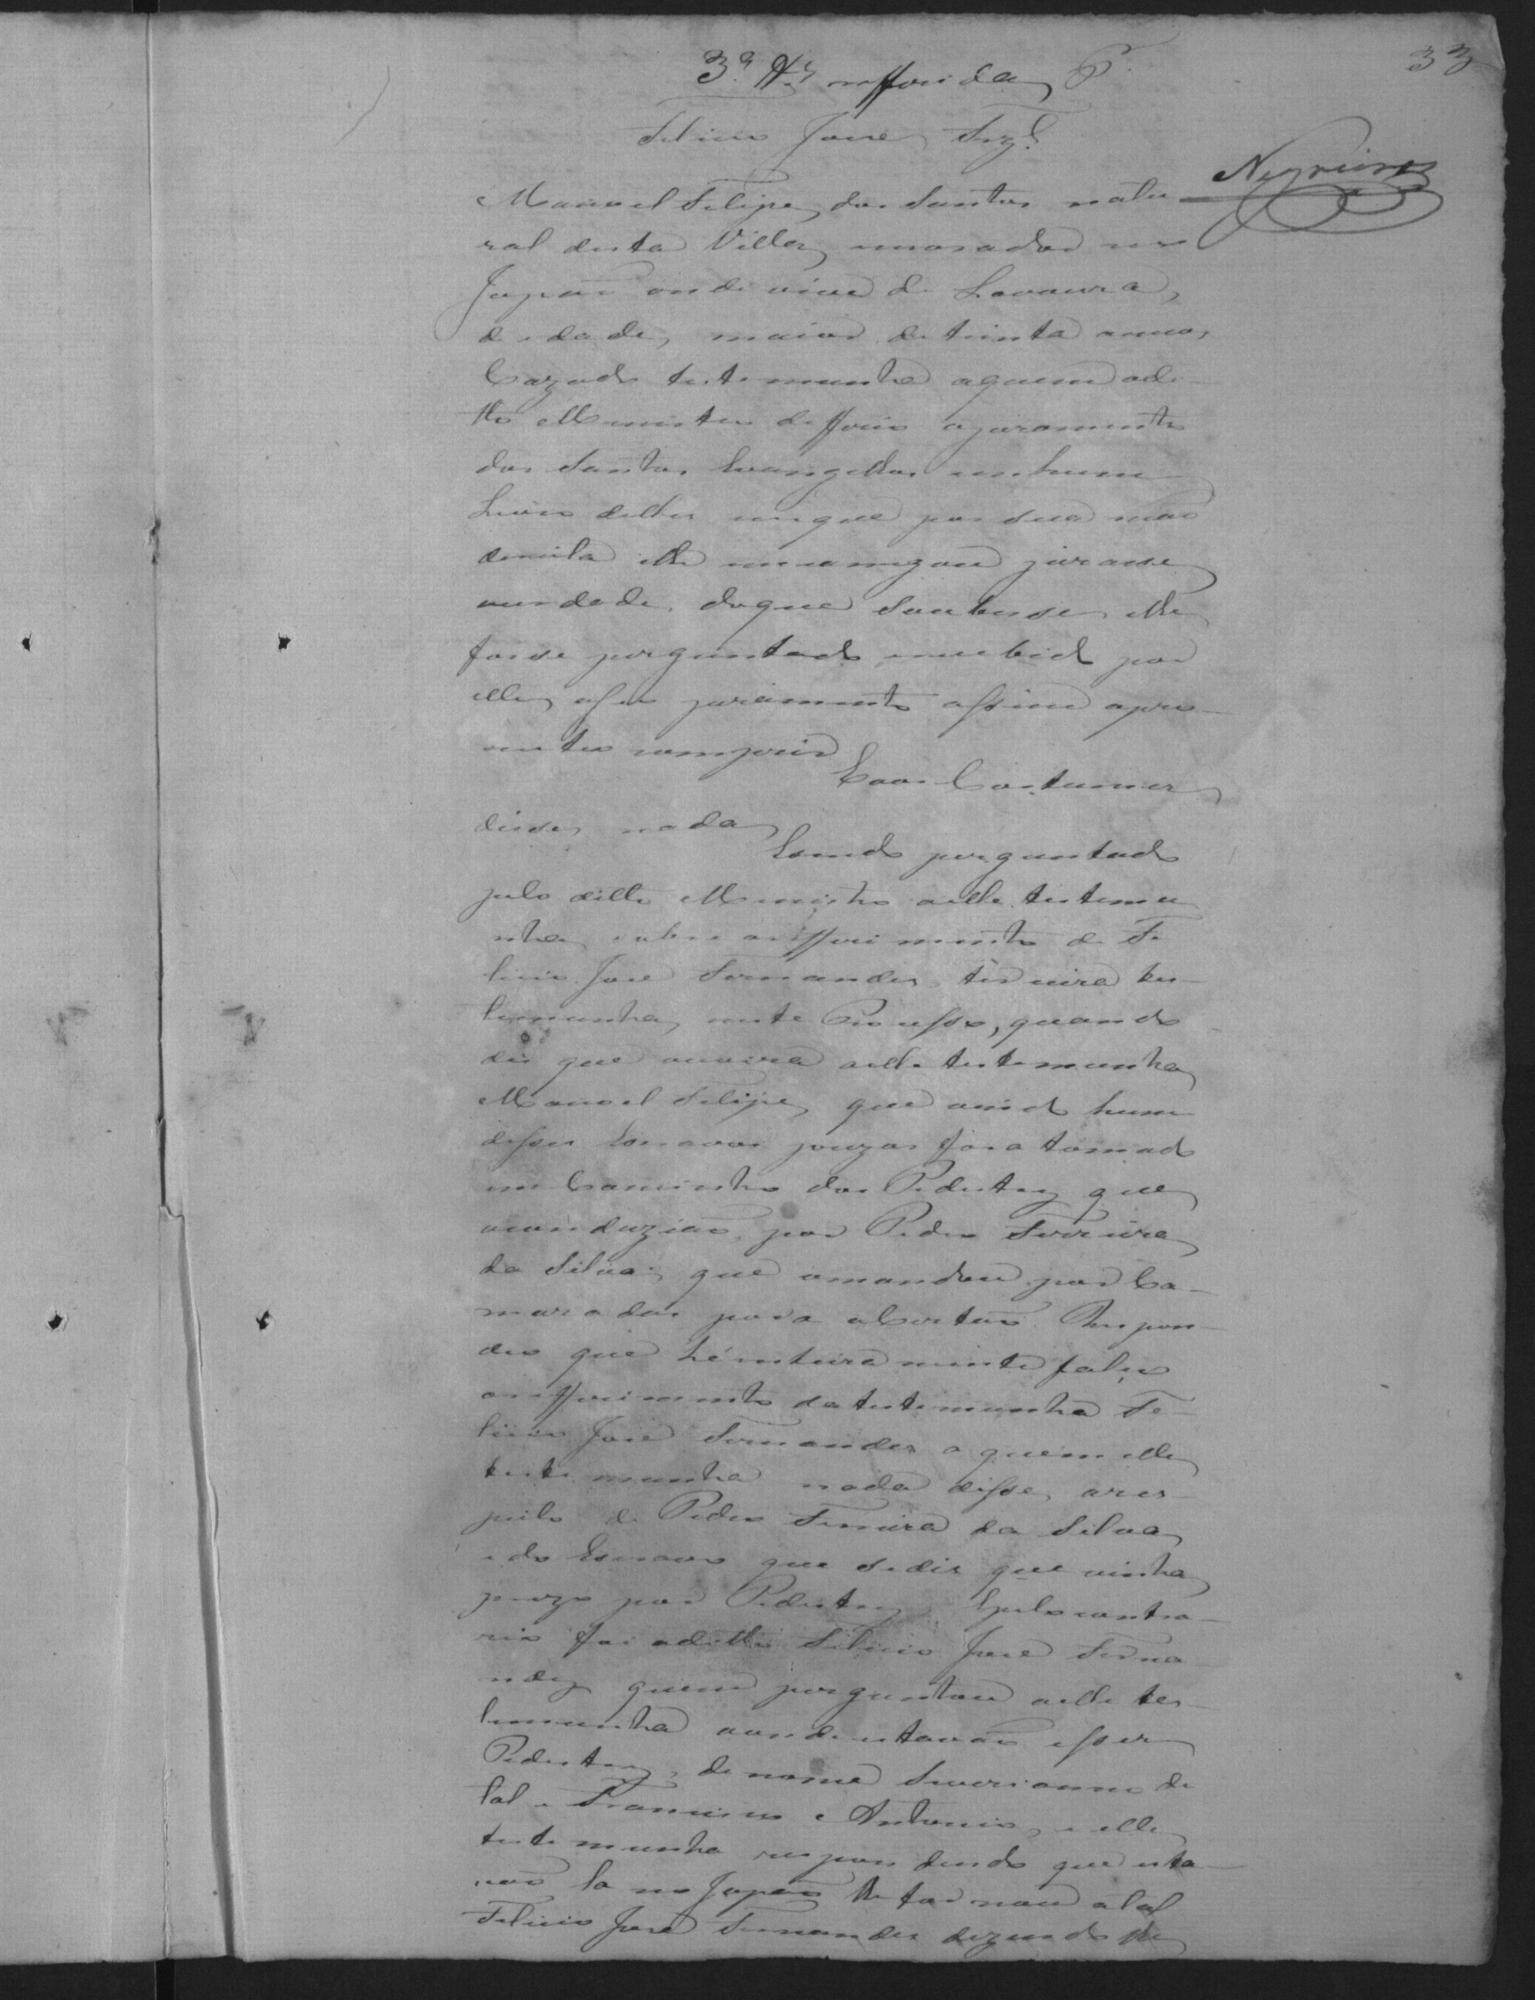 33
3ª Tª refferida P.
Felicio Jozé Frz.
Negreiros
Manoel Felipe dos Santos natu
ral desta Villa, morador no
Japão onde vive de Lavoura,
de idade, maior de trinta annos,
Cazado testemunha aquem odi
tto Menistro defferio ojuramento
dos Santos Evangelhos emhum
Livro delles emque pos sua mão
direita elle emcarregou jurasse
verdade, doque Soubesse elle
fosse perguntado, erecebido por
elle, esse juramento assim opro
metteo comprir
Eaos Costumes
disse, nada
Esendo perguntado
pelo ditto Menistro aelle testemu
nha, sobre orefferimento de Fe
licio José Fernandes, terceira tes
temunha, neste Processo, quando
dis que ouvira aelle testemunha
Manoel Felipe, que vindo hum
desses Escravos prezos fora tomado
no Caminho dos Pedestes que
oconduzião, por Pedro Ferreira
da Silva; que omandou por Ca
maradas para oCertão. Respon
deo que hé inteiramente falso
orefferimento da testemunha Fe
licio José Fernandes a quem elle
testemunha nada disse, ares
peito de Pedro Ferreira da Silva,
e do Escravo que sediz que vinha
prezo por Pedestes, Epelo contra
rio foi oditto Felicio José Ferna
ndes quem perguntou aelle tes
temunha aonde estavão esses
Pedestes, de nome Severianno de
tal e Francisco e Antonio, e elle
testemunha respondendo que esta
vão la no Japão lhe tornou otal
Felicio José Fernandes dizendo lhe